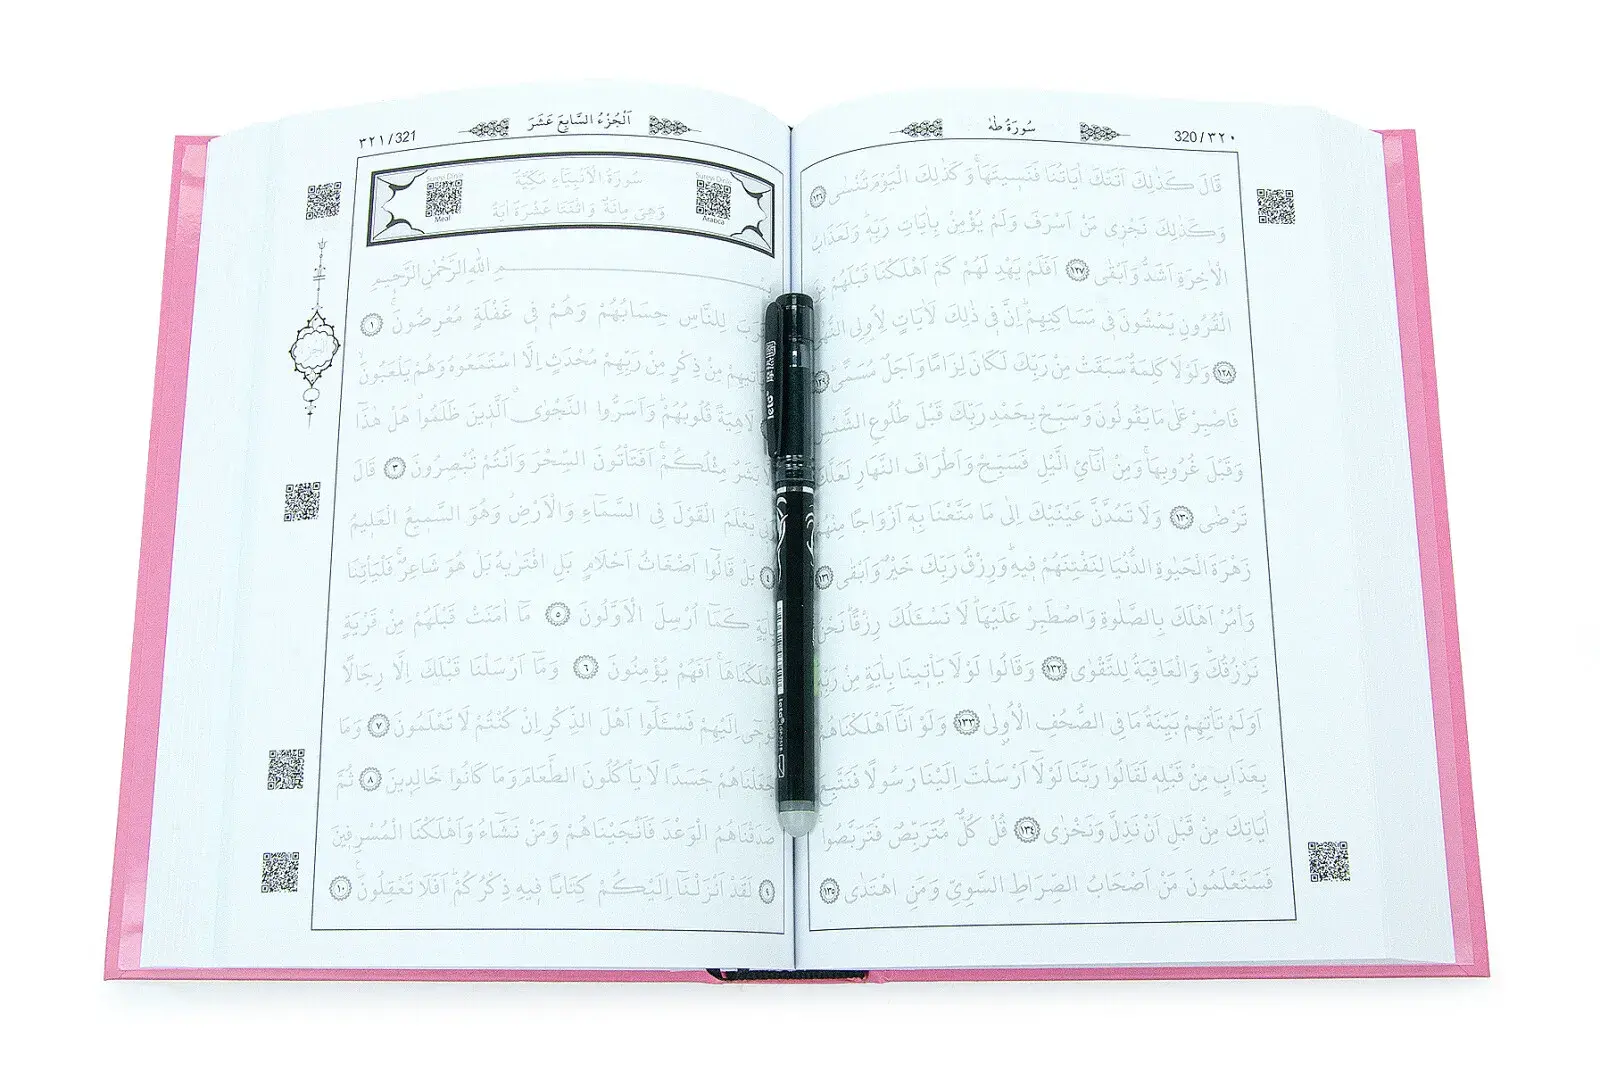 سُورَةُ طٰهٰ
320/٣٢٠
قَالَ كَذٰلِكَ اَتَتْكَ اٰيَاتُنَا فَنَسٖيتَهَاۚ وَكَذٰلِكَ الْيَوْمَ تُنْسٰى ١٢٦
وَكَذٰلِكَ نَجْزٖى مَنْ اَسْرَفَ وَلَمْ يُؤْمِنْ بِاٰيَاتِ رَبِّهٖؕ وَلَعَذَابُ
الْاٰخِرَةِ اَشَدُّ وَاَبْقٰى ١٢٧ اَفَلَمْ يَهْدِ لَهُمْ كَمْ اَهْلَكْنَا قَبْلَهُمْ مِنَ
الْقُرُونِ يَمْشُونَ فٖى مَسَاكِنِهِمْؕ اِنَّ فٖى ذٰلِكَ لَاٰيَاتٍ لِاُولِى النُّهٰى
١٢٨ وَلَوْلَا كَلِمَةٌ سَبَقَتْ مِنْ رَبِّكَ لَكَانَ لِزَامًا وَاَجَلٌ مُسَمًّى ١٢٩
فَاصْبِرْ عَلٰى مَا يَقُولُونَ وَسَبِّحْ بِحَمْدِ رَبِّكَ قَبْلَ طُلُوعِ الشَّمْسِ
وَقَبْلَ غُرُوبِهَاۚ وَمِنْ اٰنَآئِ الَّيْلِ فَسَبِّحْ وَاَطْرَافَ النَّهَارِ لَعَلَّكَ
تَرْضٰى ١٣٠ وَلَا تَمُدَّنَّ عَيْنَيْكَ اِلٰى مَا مَتَّعْنَا بِهٖٓ اَزْوَاجًا مِنْهُمْ
زَهْرَةَ الْحَيٰوةِ الدُّنْيَا لِنَفْتِنَهُمْ فٖيهِؕ وَرِزْقُ رَبِّكَ خَيْرٌ وَاَبْقٰى ١٣١
وَأْمُرْ اَهْلَكَ بِالصَّلٰوةِ وَاصْطَبِرْ عَلَيْهَاؕ لَا نَسْـَٔلُكَ رِزْقًاؕ نَحْنُ
نَرْزُقُكَؕ وَالْعَاقِبَةُ لِلتَّقْوٰى ١٣٢ وَقَالُوا لَوْلَا يَأْتٖينَا بِاٰيَةٍ مِنْ رَبِّهٖؕ
اَوَلَمْ تَأْتِهِمْ بَيِّنَةُ مَا فِى الصُّحُفِ الْاُولٰى ١٣٣ وَلَوْ اَنَّٓا اَهْلَكْنَاهُمْ
بِعَذَابٍ مِنْ قَبْلِهٖ لَقَالُوا رَبَّنَا لَوْلَٓا اَرْسَلْتَ اِلَيْنَا رَسُولًا فَنَتَّبِعَ
اٰيَاتِكَ مِنْ قَبْلِ اَنْ نَذِلَّ وَنَخْزٰى ١٣٤ قُلْ كُلٌّ مُتَرَبِّصٌ فَتَرَبَّصُواۚ
فَسَتَعْلَمُونَ مَنْ اَصْحَابُ الصِّرَاطِ السَّوِىِّ وَمَنِ اهْتَدٰى ١٣٥
اَلْجُزْءُ السَّابِعَ عَشَرَ
٣٢١/321
سُورَةُ الْاَنْبِيَٓاءِ مَكِّيَّةٌ
وَهِىَ مِائَةٌ وَاثْنَتَا عَشْرَةَ اٰيَةً
Meal
Arapça
مِ اللّٰهِ الرَّحْمٰنِ الرَّحٖيمِ
لِلنَّاسِ حِسَابُهُمْ وَهُمْ فٖى غَفْلَةٍ مُعْرِضُونَۚ ١
مِنْ ذِكْرٍ مِنْ رَبِّهِمْ مُحْدَثٍ اِلَّا اسْتَمَعُوهُ وَهُمْ يَلْعَبُونَۙ
لَاهِيَةً قُلُوبُهُمْؕ وَاَسَرُّوا النَّجْوٰىۗ اَلَّذٖينَ ظَلَمُواۗ هَلْ هٰذَٓا
بَشَرٌ مِثْلُكُمْۚ اَفَتَأْتُونَ السِّحْرَ وَاَنْتُمْ تُبْصِرُونَ ٣ قَالَ
يَعْلَمُ الْقَوْلَ فِى السَّمَٓاءِ وَالْاَرْضِؗ وَهُوَ السَّمٖيعُ الْعَلٖيمُ
٤ بَلْ قَالُٓوا اَضْغَاثُ اَحْلَامٍ بَلِ افْتَرٰيهُ بَلْ هُوَ شَاعِرٌۚ فَلْيَأْتِنَا
كَمَٓا اُرْسِلَ الْاَوَّلُونَ ٥ مَٓا اٰمَنَتْ قَبْلَهُمْ مِنْ قَرْيَةٍ
اَهْلَكْنَاهَاۚ اَفَهُمْ يُؤْمِنُونَ ٦ وَمَٓا اَرْسَلْنَا قَبْلَكَ اِلَّا رِجَالًا
اِلَيْهِمْ فَسْـَٔلُٓوا اَهْلَ الذِّكْرِ اِنْ كُنْتُمْ لَا تَعْلَمُونَ ٧ وَمَا
جَعَلْنَاهُمْ جَسَدًا لَا يَأْكُلُونَ الطَّعَامَ وَمَا كَانُوا خَالِدٖينَ ٨ ثُمَّ
صَدَقْنَاهُمُ الْوَعْدَ فَاَنْجَيْنَاهُمْ وَمَنْ نَشَٓاءُ وَاَهْلَكْنَا الْمُسْرِفٖينَ
٩ لَقَدْ اَنْزَلْنَٓا اِلَيْكُمْ كِتَابًا فٖيهِ ذِكْرُكُمْؕ اَفَلَا تَعْقِلُونَ ١٠
leto